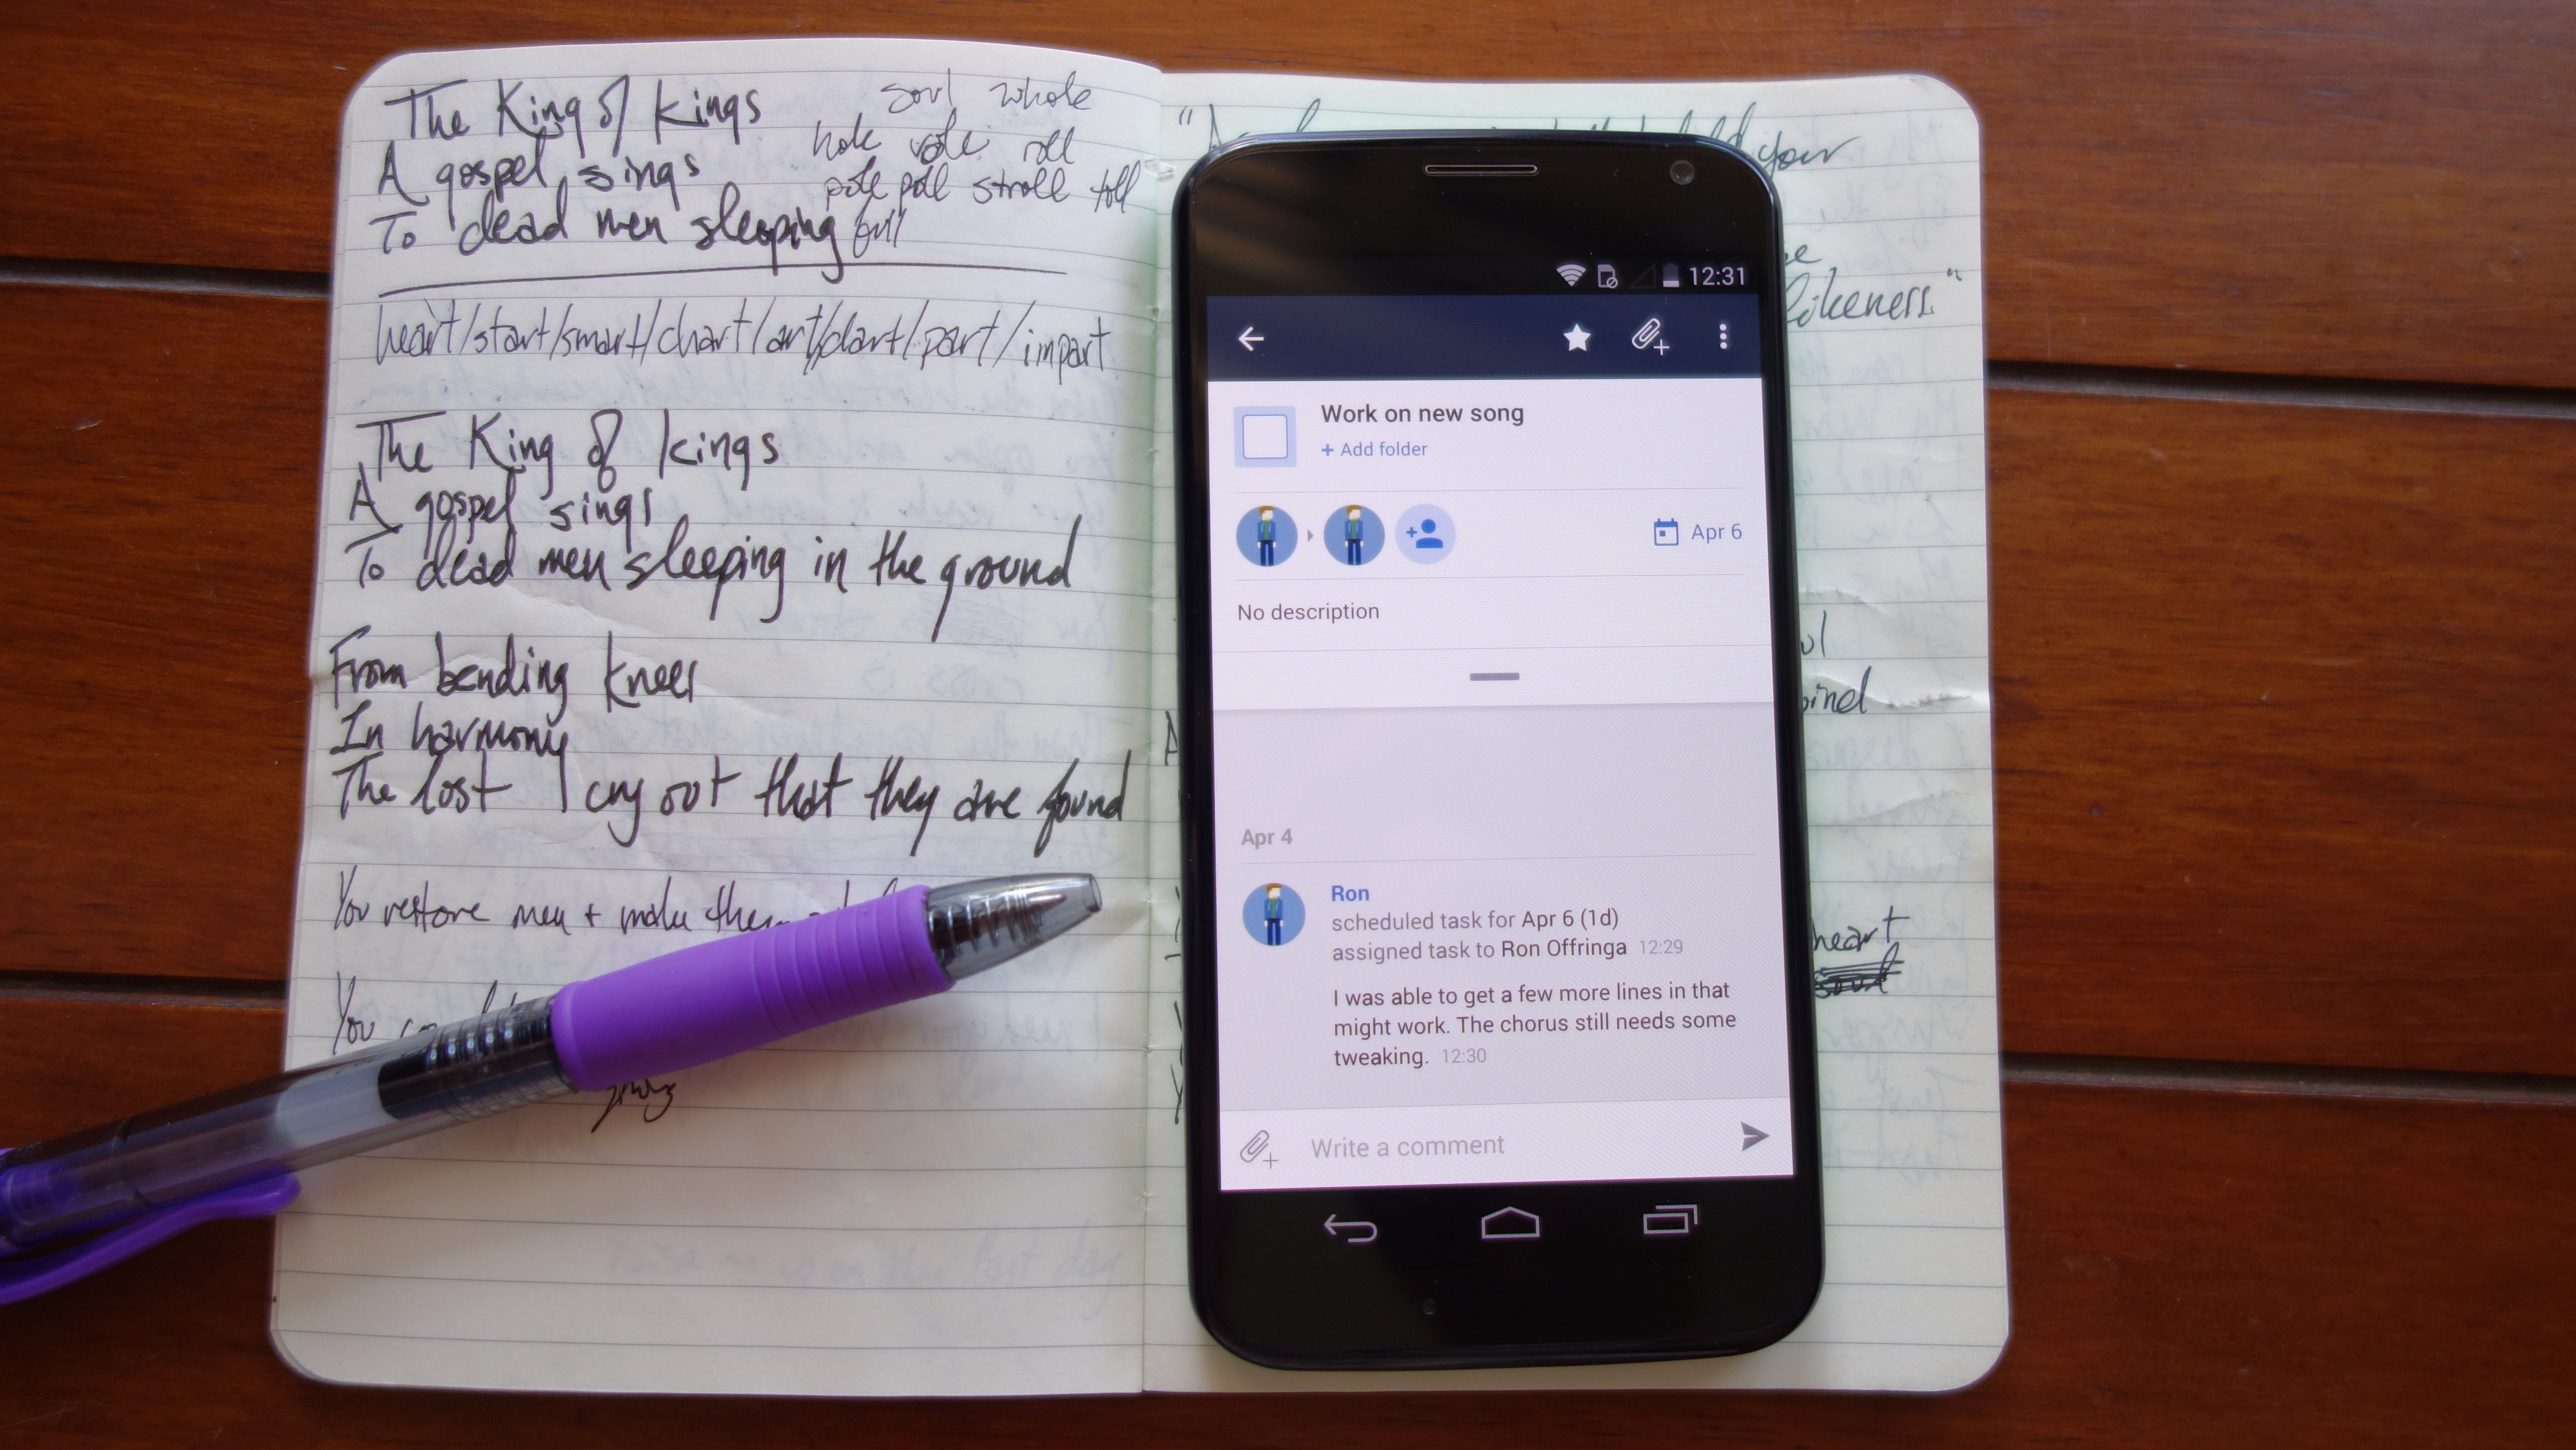 The King of kings
A gospel sings
To dead men sleeping
soul whole
hole role roll
pole poll stroll toll
full
heart/start/smart/chart/art/dart/part/impart
The King of kings
A gospel sings
To dead men sleeping in the ground
From bending knees
In harmony
The lost I cry out that they are found
You restore men + make them
You
your
likeness."
heart
12:31
Work on new song
+ Add folder
Apr 6
No description
Apr 4
Ron
scheduled task for Apr 6 (1d)
assigned task to Ron Offringa 12:29
I was able to get a few more lines in that
might work. The chorus still needs some
tweaking. 12:30
Write a comment